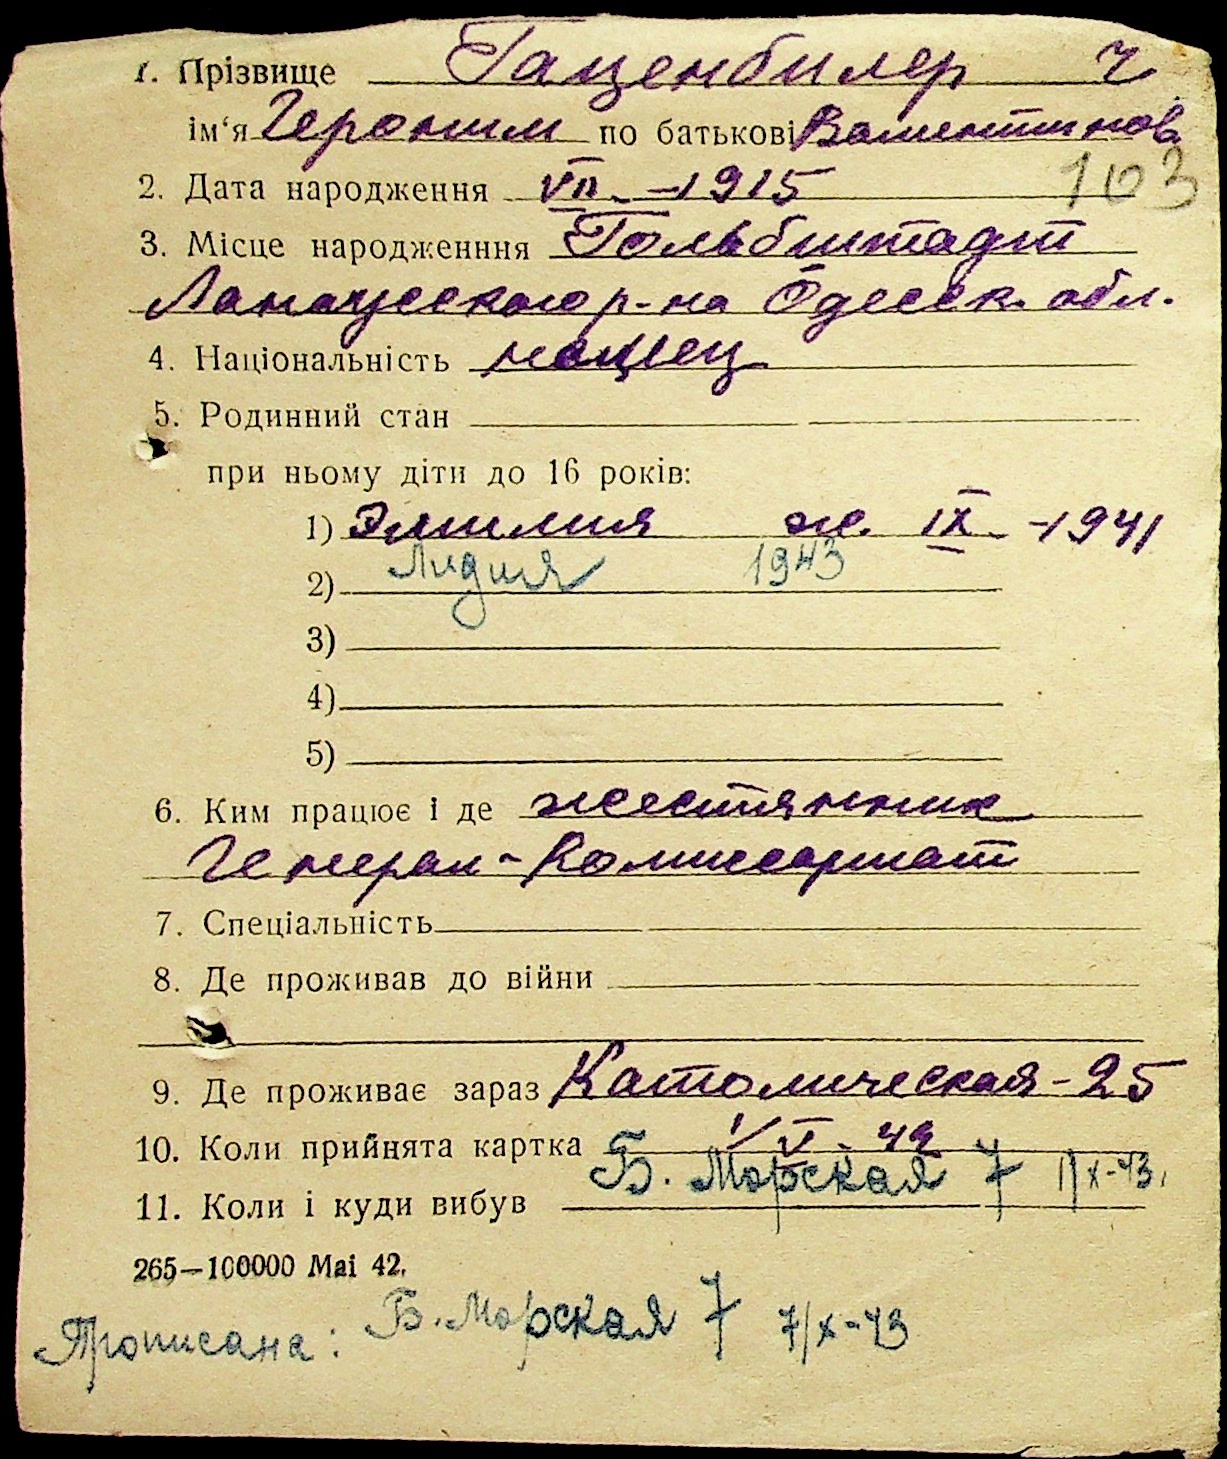 1. Прізвище Гаценбилер ч
ім‘я Героним по батькові Валентинов
2. Дата народження VII – 1915 103
3. Місце народженння Гольбштадт
Ландусского р-на Одесск. обл.
4. Національність немец
5. Родинний стан
при ньому діти до 16 років:
1) Эмилия ж. IX – 1941
2) Лидия 1943
3)
4)
5)
6. Ким працює і де жестянник
Генерал-Комиссариат
7. Спеціальність
8. Де проживав до війни
9. Де проживає зараз Католическая - 25
10. Коли прийнята картка 1/VI - 42
Б. Морская 7 11/X-43.
11. Коли і куди вибув
265—100000 Mai 42.
Прописана: Б. Морская 7 7/X-43